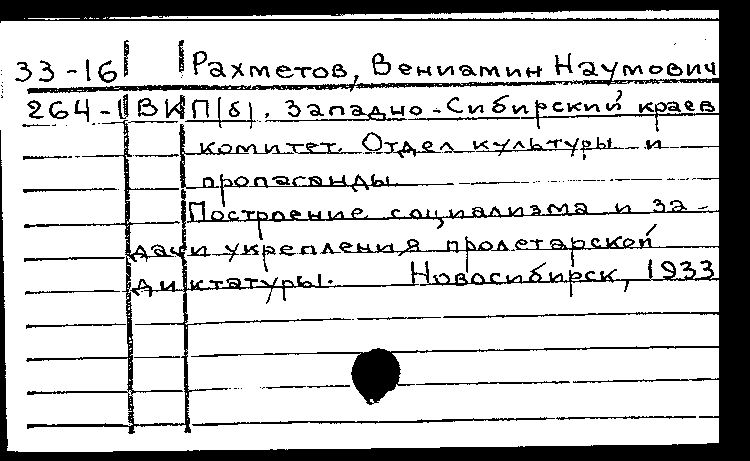 33-16 Рахметов, Вениамин Наумович
264-1 ВКП(б). Западно-Сибирский краев
комитет. Отдел культуры и
пропаганды.
Построение социализма и за-
дачи укрепления пролетарской
диктатуры. Новосибирск, 1933